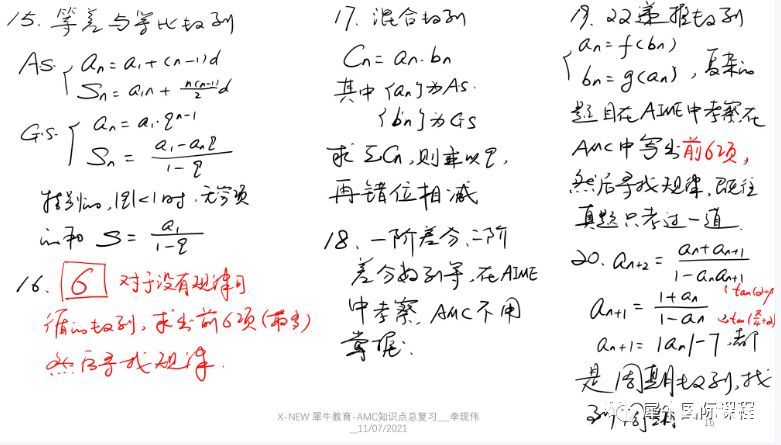 15. 等差与等比数列
A.S. { an = a1 + (n-1)d
Sn = a1n + n(n-1)/2 d
G.S. { an = a1·q^(n-1)
Sn = (a1 - anq)/(1-q)
特别的, |q|<1时, 无穷项
的和 S = a1/(1-q)
16. 6 对于没有规律可
循的数列, 求出前6项(最多)
然后寻找规律.
17. 混合数列
Cn = an·bn
其中{an}为AS.
{bn}为GS
求ΣCn, 则乘以q,
再错位相减
18. 一阶差分、二阶
差分数列等, 在AIME
中考察, AMC不用
掌握.
19. 22递推数列
{ an = f(bn)
bn = g(an), 复杂的
题目在AIME中考察, 在
AMC中写出前6项,
然后寻找规律, 既往
真题只考过一道.
20. an+2 = (an + an+1)/(1 - an an+1)
an+1 = (1+an)/(1-an)
an+1 = |an| - 7, 都
是周期数列, 找
到周期
X-NEW 犀牛教育-AMC知识点总复习__李现伟
__11/07/2021
犀牛国际课程
16